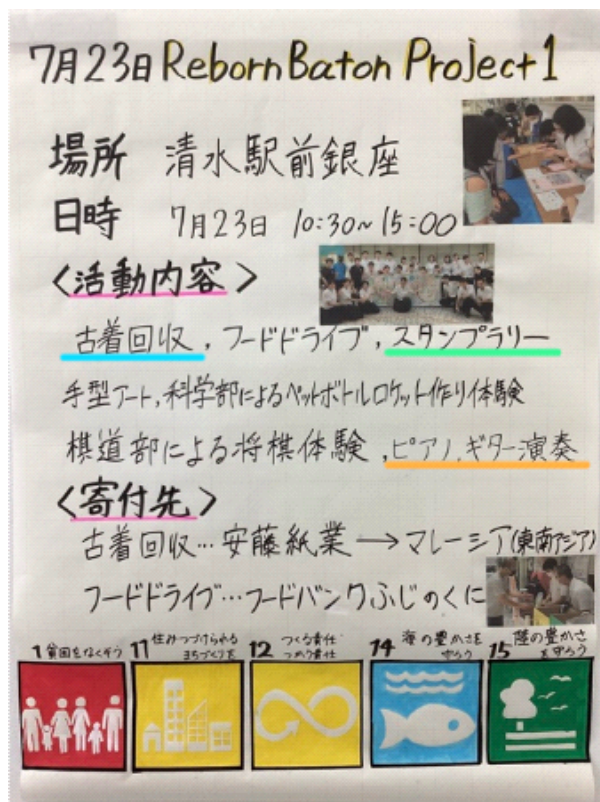 7月23日 Reborn Baton Project 1
場所 清水駅前銀座
日時 7月23日 10:30~15:00
<活動内容>
古着回収, フードドライブ, スタンプラリー
手型アート, 科学部によるペットボトルロケット作り体験
棋道部による将棋体験, ピアノ, ギター演奏
<寄付先>
古着回収…安藤紙業→マレーシア(東南アジア)
フードドライブ…フードバンクふじのくに
1 貧困をなくそう
11 住みつづけられるまちづくりを
12 つくる責任 つかう責任
14 海の豊かさを守ろう
15 陸の豊かさを守ろう